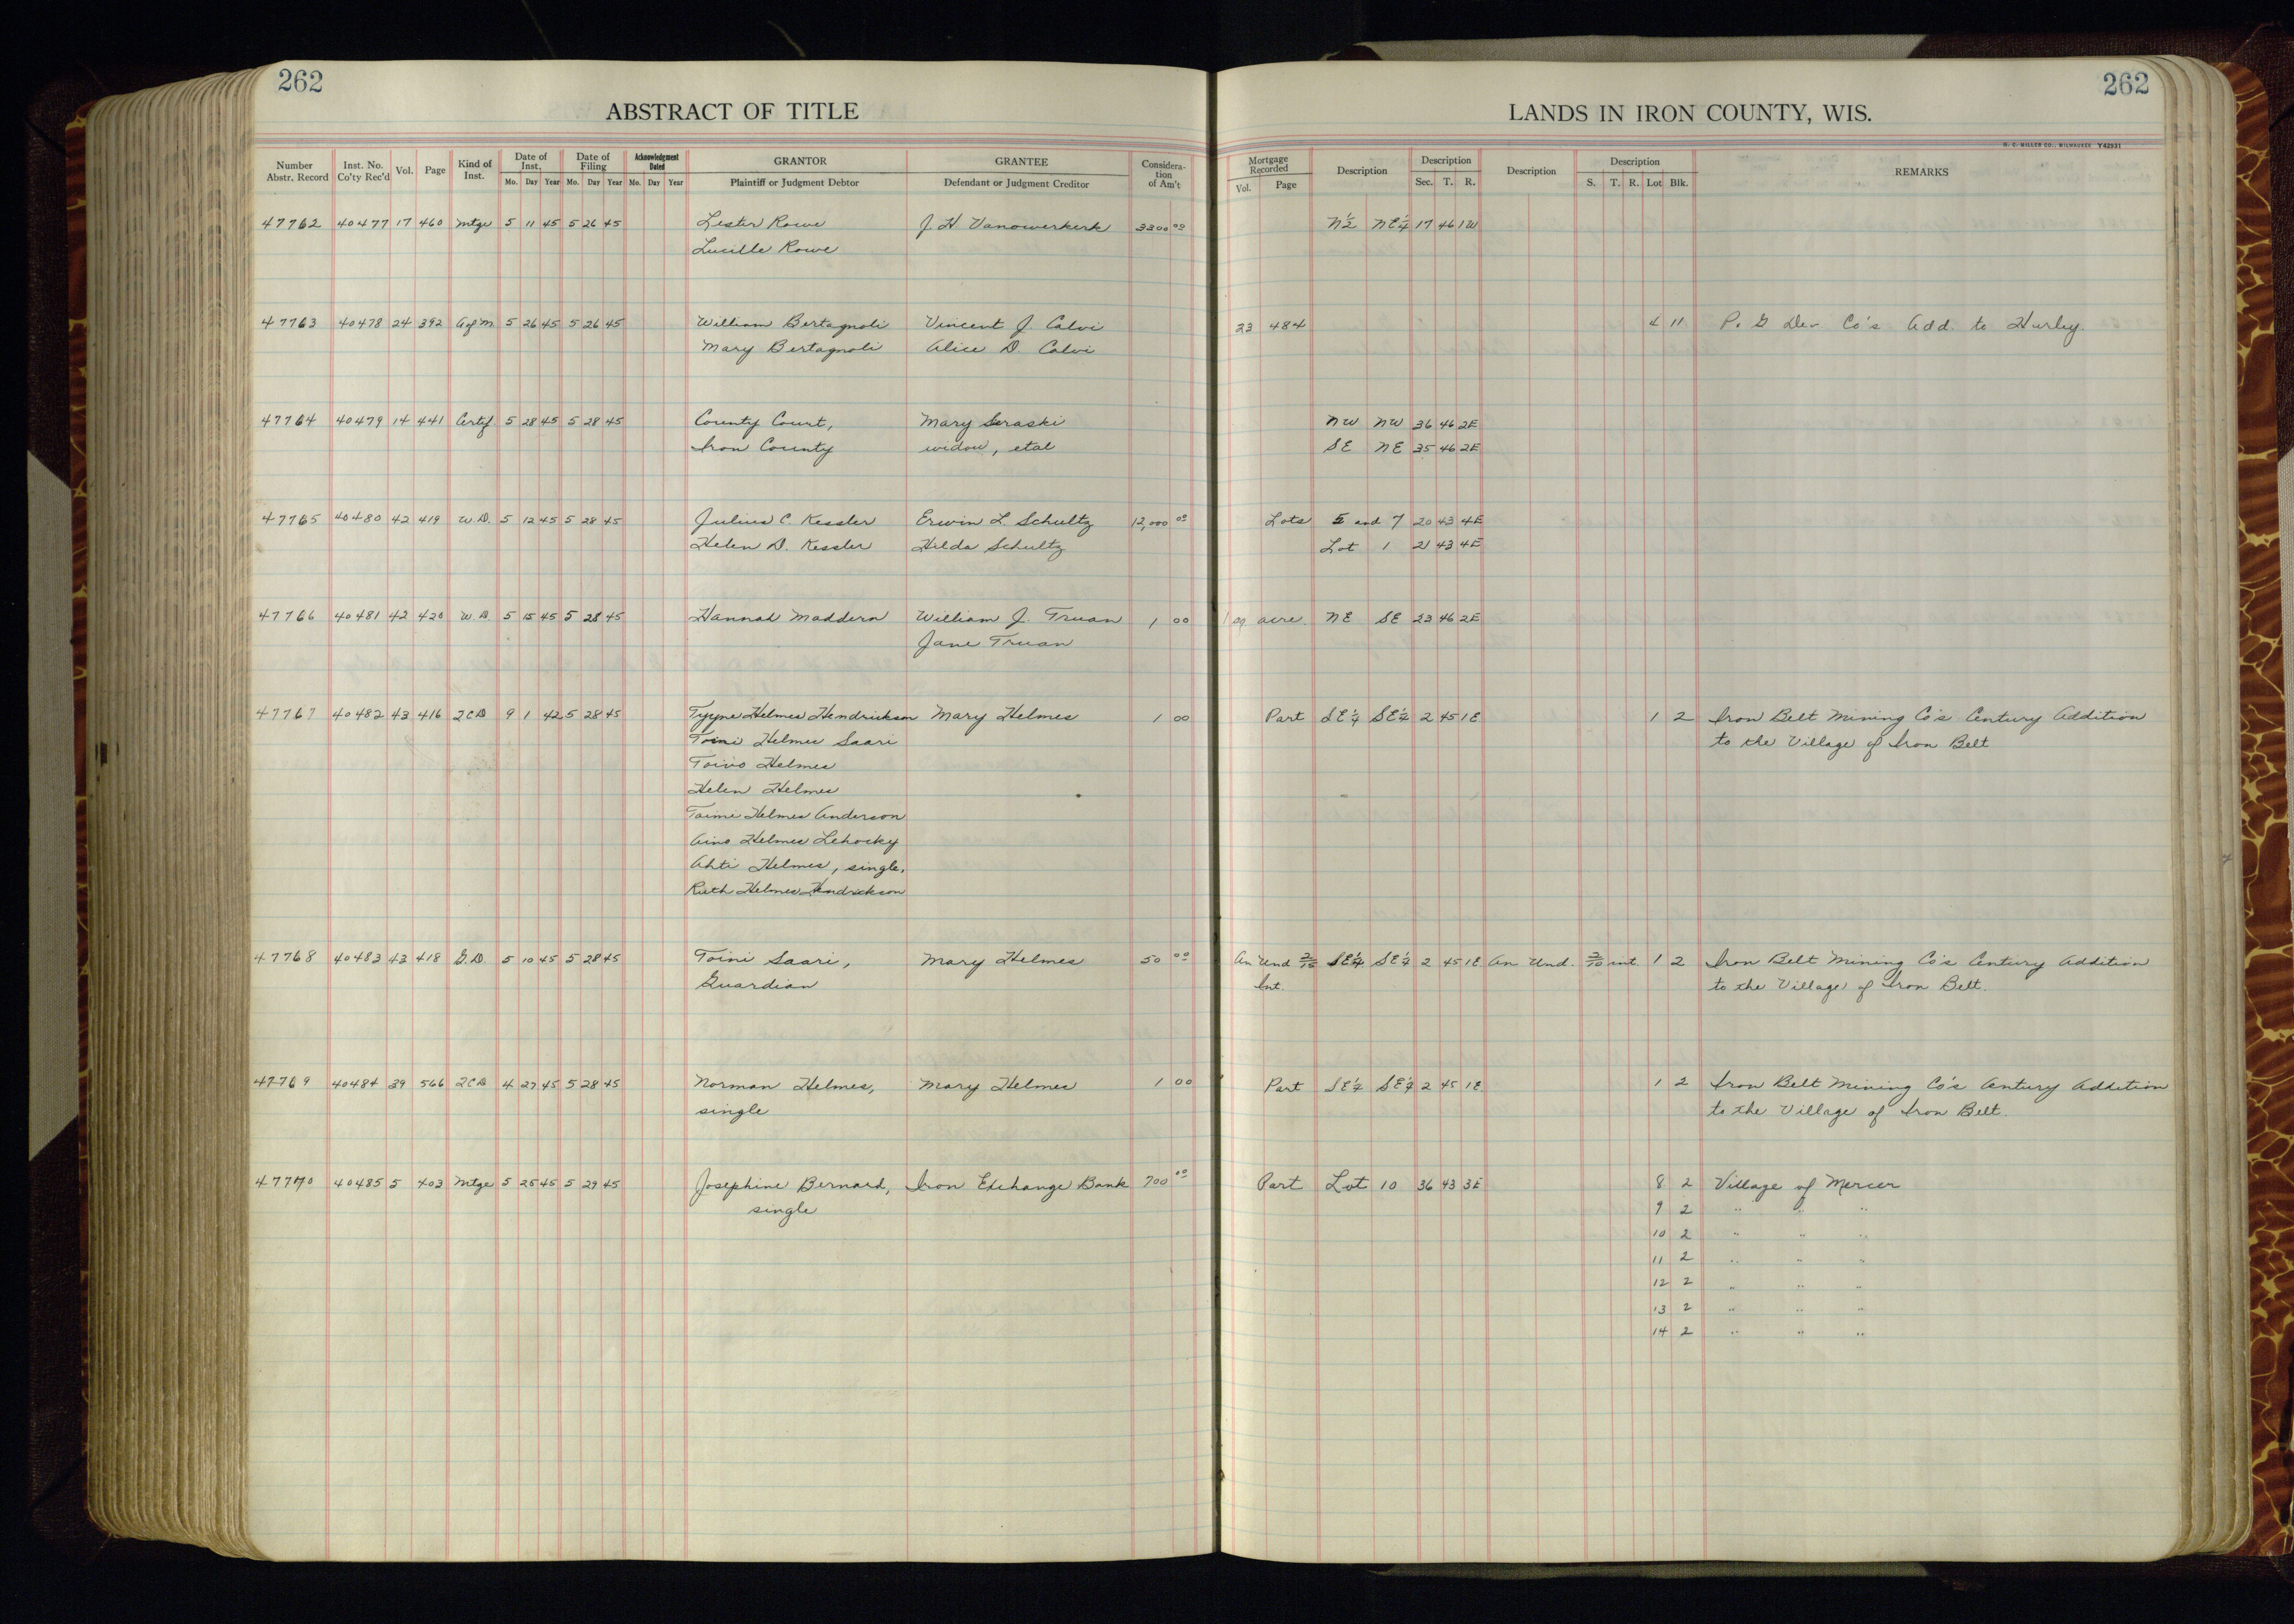 262
262
ABSTRACT OF TITLE
LANDS IN IRON COUNTY, WIS.
H. C. MILLER CO., MILWAUKEE Y42931
Number Abstr. Record Inst. No. Co'ty Rec'd Vol. Page Kind of Inst. Date of Inst. Mo. Day Year Date of Filing Mo. Day Year Acknowledgment Dated Mo. Day Year GRANTOR Plaintiff or Judgment Debtor GRANTEE Defendant or Judgment Creditor Considera-tion of Am't Mortgage Recorded Vol. Page Description Description Sec. T. R. Description Description S. T. R. Lot Blk. REMARKS
47762 40477 17 460 Mtge 5 11 45 5 26 45 Lester Rowe J. H. Vanowerkerk 3300 00 N½ NE¼ 17 46 1W
Lucille Rowe
47763 40478 24 392 A of M 5 26 45 5 26 45 William Bertagnoli Vincent J. Calvi 23 484 4 11 P. & G Dev Co's Add. to Hurley.
Mary Bertagnoli Alice D. Calvi
47764 40479 14 441 Certif. 5 28 45 5 28 45 County Court, Mary Seraski NW NW 36 46 2E
Iron County widow, etal SE NE 35 46 2E
47765 40480 42 419 W.D. 5 12 45 5 28 45 Julius C. Kessler Erwin L. Schultz 12,000 00 Lots 5 and 7 20 43 4E
Helen D. Kessler Hilda Schultz Lot 1 21 43 4E
47766 40481 42 420 W.D. 5 15 45 5 28 45 Hannah Maddern William J. Truan 1 00 1 sq acre NE SE 23 46 2E
Jane Truan
47767 40482 43 416 2CD 9 1 42 5 28 45 Tyyne Helmes Hendrickson Mary Helmes 1 00 Part SE¼ SE¼ 2 45 1E 1 2 Iron Belt Mining Co's Century Addition
Toini Helmes Saari to the Village of Iron Belt
Toivo Helmes
Helen Helmes
Taimi Helmes Anderson
Aino Helmes Lehocky
Ahti Helmes, single.
Ruth Helmes Hendrickson
47768 40483 43 418 G.D. 5 10 45 5 28 45 Toini Saari, Mary Helmes 50 00 An Und SE¼ SE¼ 2 45 1E An Und. int. 1 2 Iron Belt Mining Co's Century Addition
Guardian Int. to the Village of Iron Belt.
47769 40484 39 566 2CD 4 27 45 5 28 45 Norman Helmes, Mary Helmes 1 00 Part SE¼ SE¼ 2 45 1E 1 2 Iron Belt Mining Co's Century Addition
single to the Village of Iron Belt.
47770 40485 5 403 Mtge 5 25 45 5 29 45 Josephine Bernard, Iron Exchange Bank 700 00 Part Lot 10 36 43 3E 8 2 Village of Mercer
single 9 2 " " "
10 2 " " "
11 2 " " "
12 2 " " "
13 2 " " "
14 2 " " "